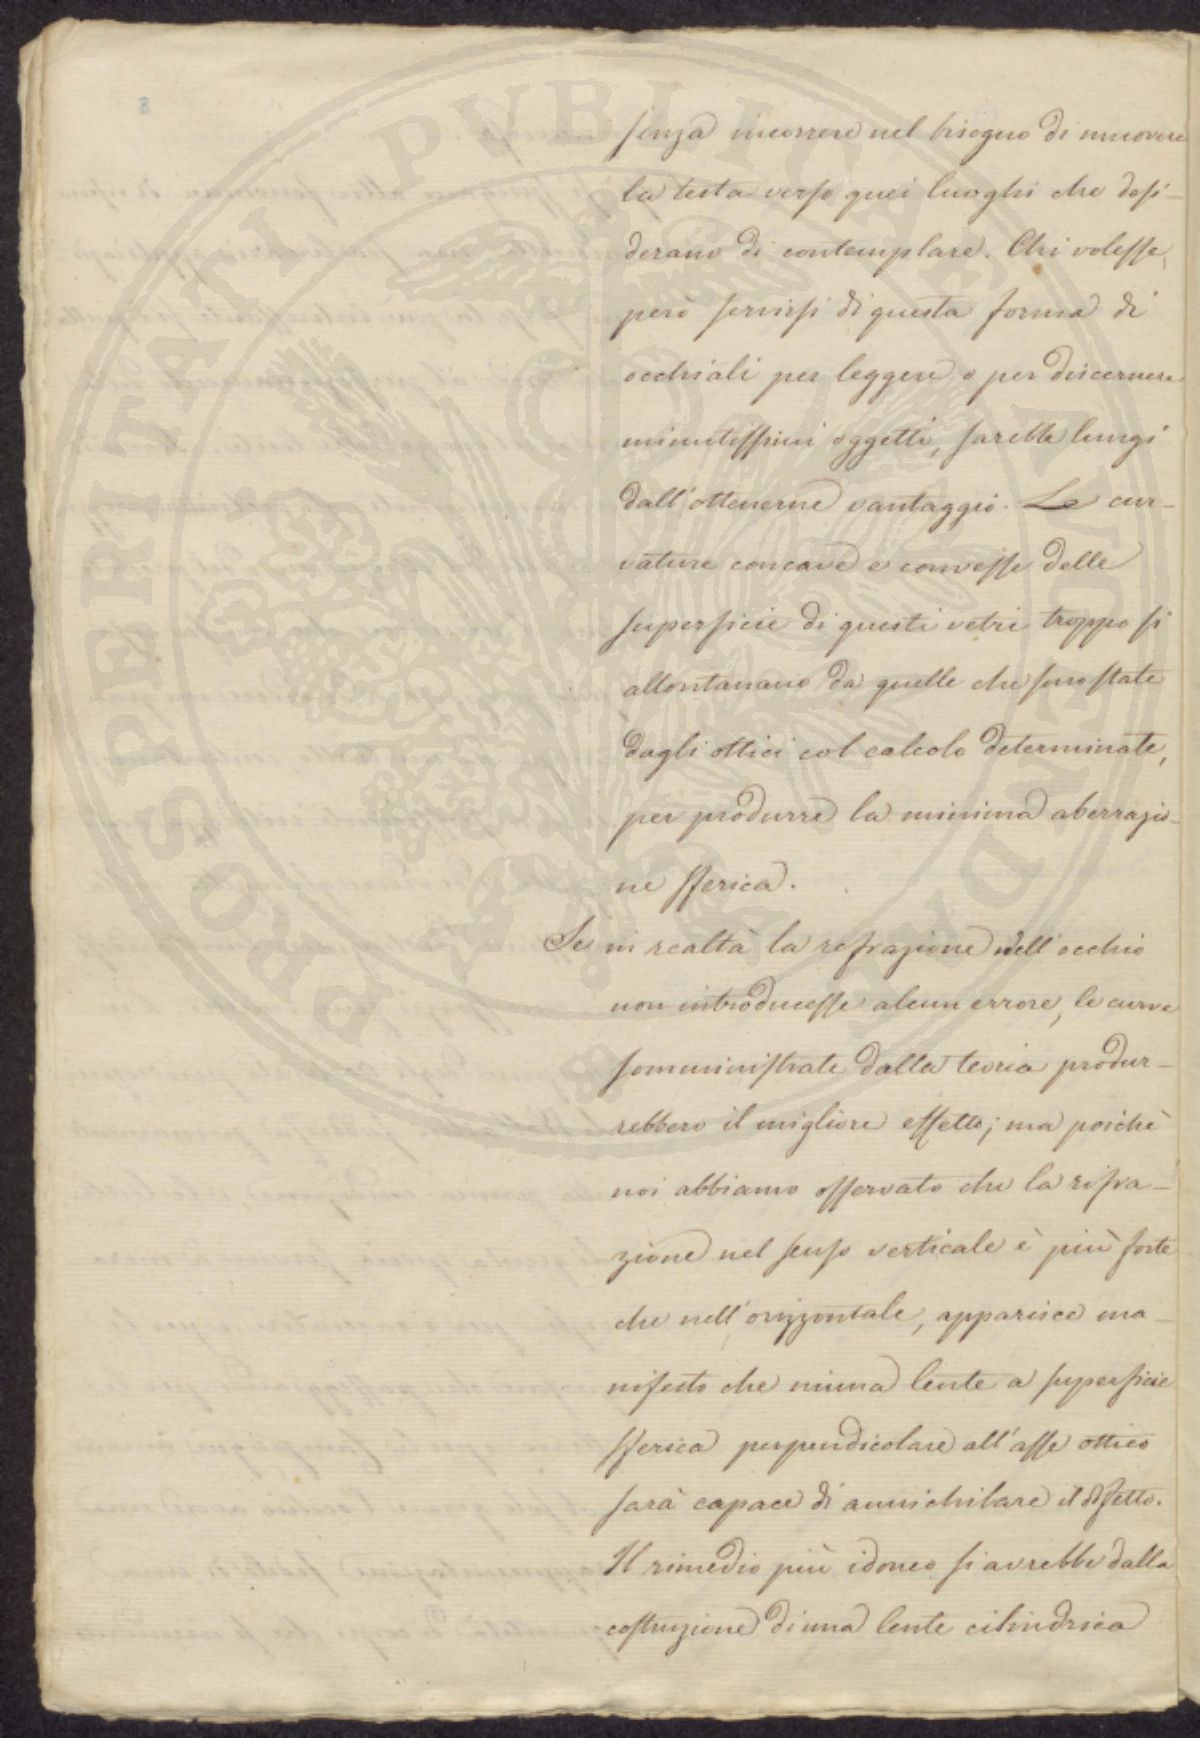 senza incorrere nel bisogno di muovere
la testa verso quei luoghi che desi-
derano di contemplare. Chi volesse,
però servirsi di questa forma di
occhiali per leggere o per discernere
minutissimi oggetti, sarebbe lungi
dall'ottenerne vantaggio. Le cur-
vature concave e convesse delle
superficie di questi vetri troppo si
allontanano da quelle che sono state
dagli ottici col calcolo determinate,
per produrre la minima aberrazio-
ne sferica.
Se in realtà la refrazione nell'occhio
non introducesse alcun errore, le curve
somministrate dalla teoria produr-
rebbero il migliore effetto; ma poichè
noi abbiamo osservato che la rifra-
zione nel senso verticale è più forte
che nell'orizzontale, apparisce ma-
nifesto che niuna lente a superficie
sferica perpendicolare all'asse ottico
sarà capace di annichilare il difetto.
Il rimedio più idoneo si avrebbe dalla
costruzione di una lente cilindrica
PROSPERITATI PVBLICAE AVGENDAE